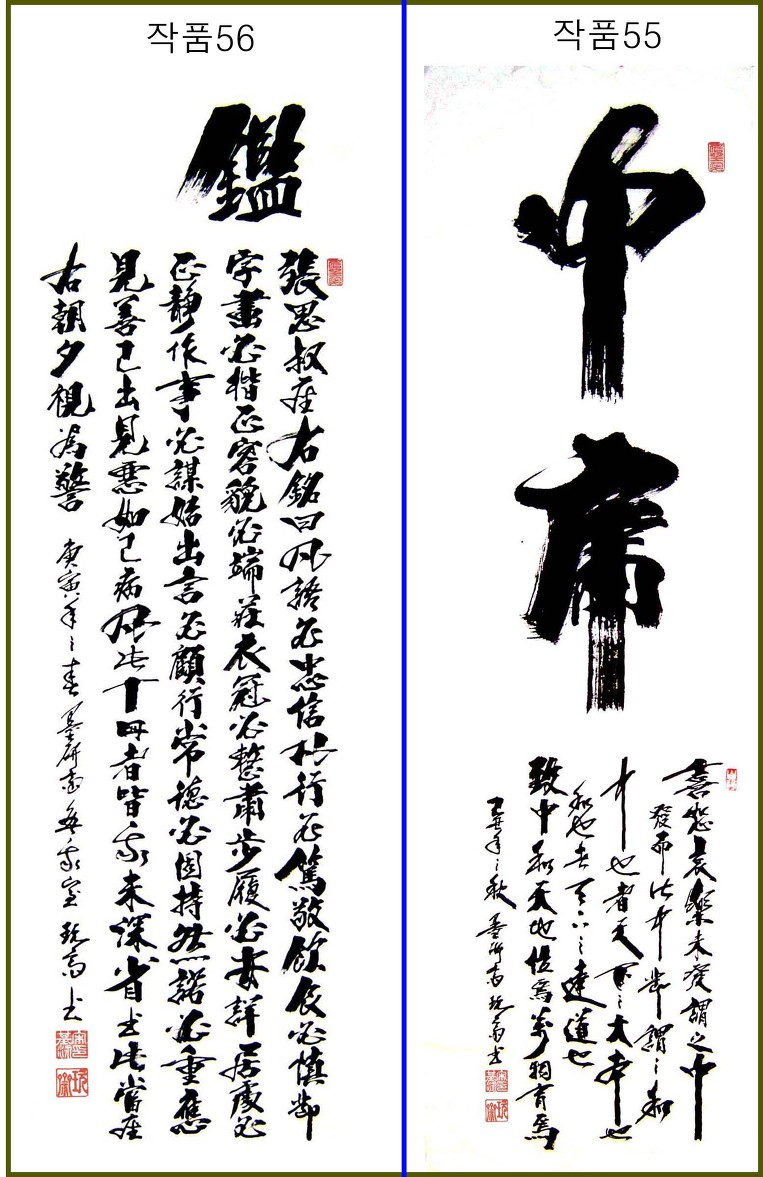 작품56
鑑
張思叔座右銘曰凡語必忠信凡行必篤敬飲食必慎節
字畫必楷正容貌必端莊衣冠必整肅步履必安詳居處必
正靜作事必謀始出言必顧行常德必固持然諾必重應
見善己出見惡如己病凡此十四者皆我未深省書此當座
右朝夕視為警 庚寅年之春 墨研齋無我室 書
작품55
中庸
喜怒哀樂未發謂之中
發而皆中節謂之和
中也者天下之大本也
和也者天下之達道也
致中和天地位焉萬物育焉
己丑年之秋 墨研齋 書